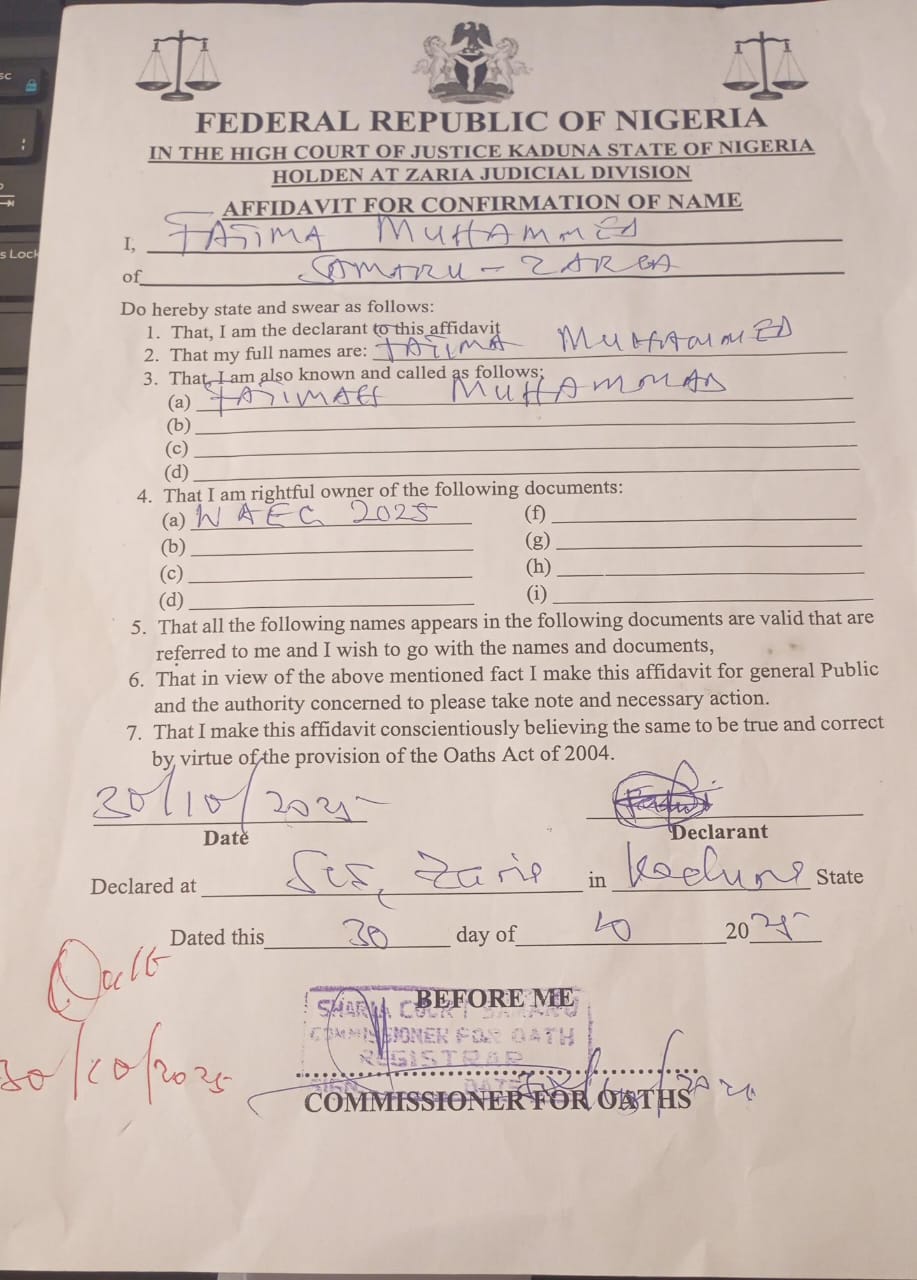 FEDERAL REPUBLIC OF NIGERIA
IN THE HIGH COURT OF JUSTICE KADUNA STATE OF NIGERIA
HOLDEN AT ZARIA JUDICIAL DIVISION
AFFIDAVIT FOR CONFIRMATION OF NAME
I, FATIMA MUHAMMED
of SAMARU - ZARIA
Do hereby state and swear as follows:
1. That, I am the declarant to this affidavit
2. That my full names are: FATIMA MUHAMMED
3. That, I am also known and called as follows;
(a) FATIMAH MUHAMMAD
(b)
(c)
(d)
4. That I am rightful owner of the following documents:
(a) WAEC 2025 (f)
(b) (g)
(c) (h)
(d) (i)
5. That all the following names appears in the following documents are valid that are
referred to me and I wish to go with the names and documents,
6. That in view of the above mentioned fact I make this affidavit for general Public
and the authority concerned to please take note and necessary action.
7. That I make this affidavit conscientiously believing the same to be true and correct
by virtue of the provision of the Oaths Act of 2004.
30/10/2025
Date Declarant
Declared at Zaria in Kaduna State
Dated this 30 day of 10 2025
Oath
30/10/2025
BEFORE ME
SHARIA COURT SAMARU
COMMISSIONER FOR OATH
REGISTRAR
SIGN DATE
COMMISSIONER FOR OATHS